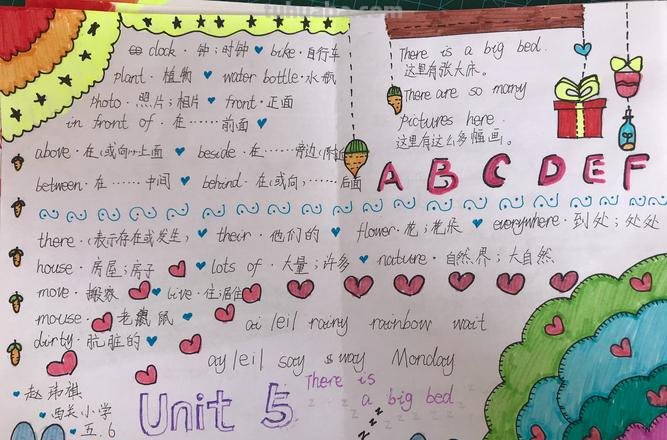 tuhuaba.com
clock · 钟；时钟 ♥ bike · 自行车
plant · 植物 ♥ water bottle · 水瓶
photo · 照片；相片 ♥ front · 正面
in front of · 在……前面 ♥
above · 在(或向)…上面 ♥ beside · 在……旁边(附近)
between · 在……中间 ♥ behind · 在(或向)……后面
There is a big bed.
这里有张大床。
There are so many
pictures here.
这里有这么多幅画。
A B C D E F
there · (表示存在或发生) ♥ their · 他们的 ♥ flower · 花；花朵 ♥ everywhere · 到处；处处
house · 房屋；房子 ♥ lots of · 大量；许多 ♥ nature · 自然界；大自然
move · 搬家 ♥ live · 住；居住
mouse · 老鼠 ♥
dirty · 肮脏的 ♥
ai /ei/ rainy rainbow wait
ay /ei/ say way Monday
赵 祎祺
西关小学
五.6
Unit 5
There is
a big bed.
z z z z